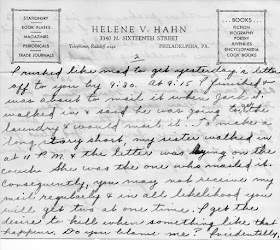 STATIONERY
BOOK PLATES
MAGAZINES
PERIODICALS
TRADE JOURNALS
HELENE V. HAHN
3340 N. SIXTEENTH STREET
Telephone, Radcliff
PHILADELPHIA, PA.
BOOKS
FICTION
BIOGRAPHY
POETRY
JUVENILES
ENCYCLOPAEDIA
COOK BOOKS
2
I rushed like mad to get yesterday's letter
off to you by 9:30. At 9:15 I finished &
was about to mail it when Jack
walked in & said he was going to the
laundry & would mail it. To make a
long story short, my sister walked in
at 11 P.M & the letter was lying on the
couch. She was the one who mailed it.
Consequently, you may not receive my
mail regularly & in all likelihood you
will get two at one time. I get the
desire to kill when something like that
happens. Do you blame me? Incidentally,